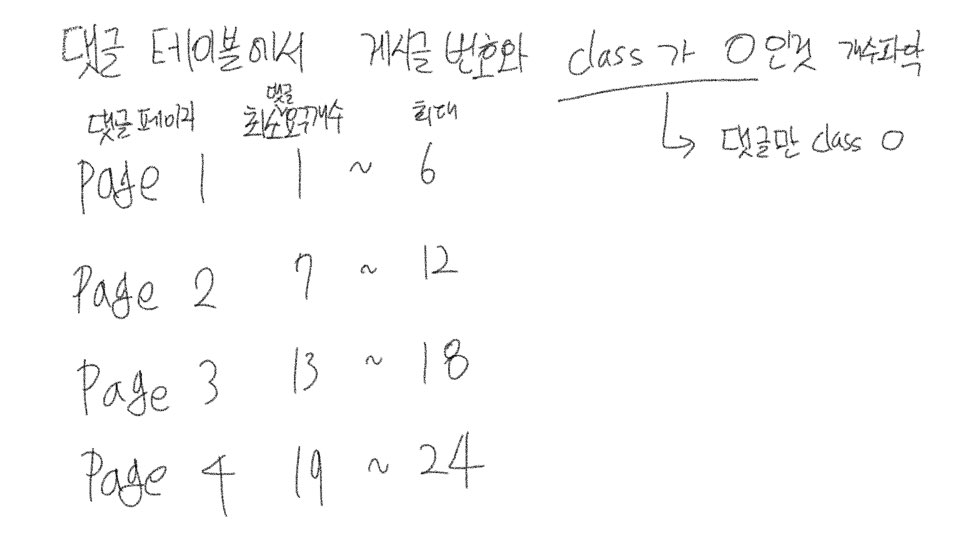 댓글 테이블에서 게시글 번호와 class가 0인것 개수파악
→ 댓글만 class 0
댓글페이지 댓글 최소요구개수 최대
Page 1 1 ~ 6
Page 2 7 ~ 12
Page 3 13 ~ 18
Page 4 19 ~ 24